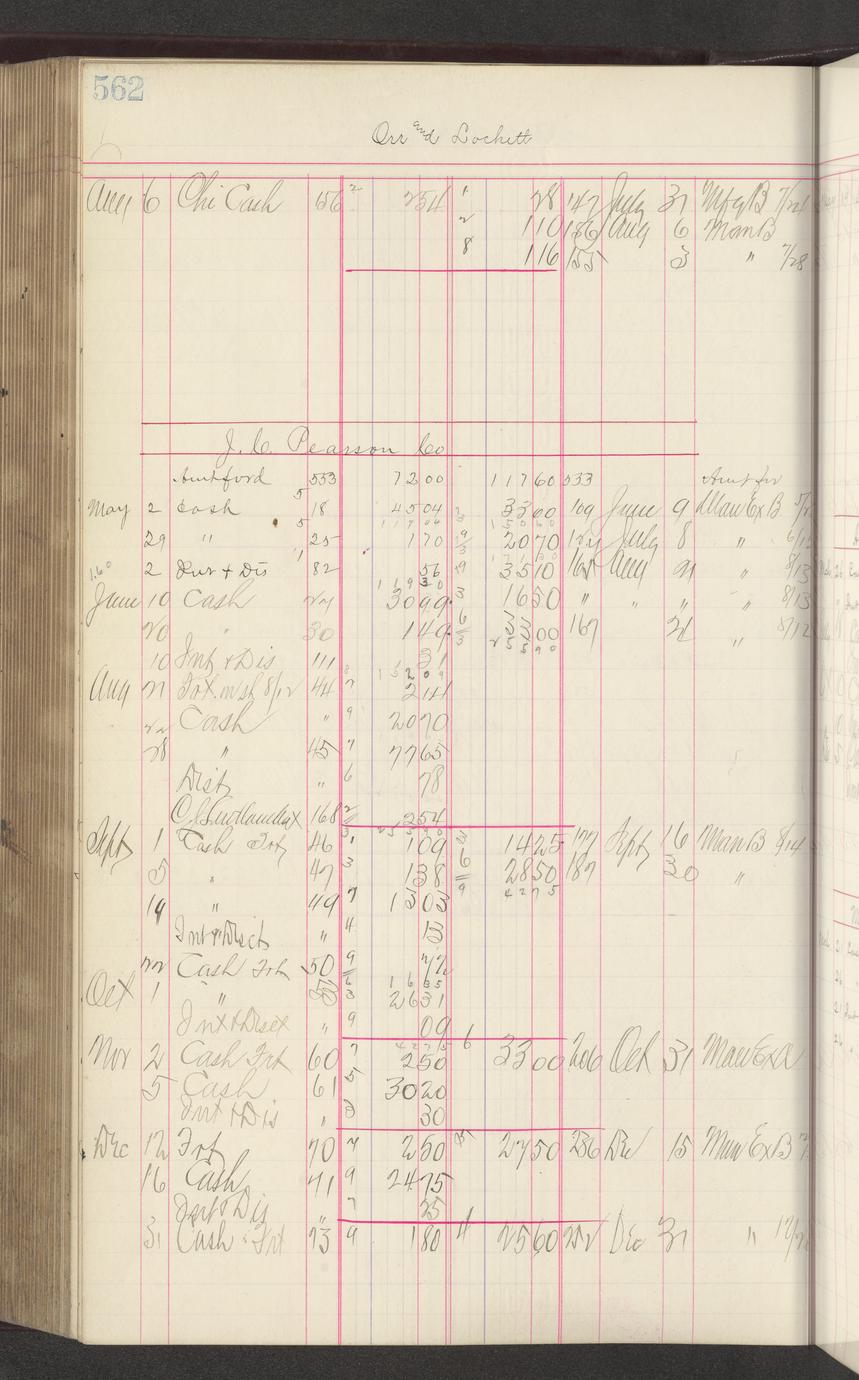 562
Orr and Lockett
Aug 6 Chi Cash 156 2 254 1 28 147 July 31 Mfg B 7/24
2 110 156 Aug 6 Man B
8 116 155 3 " 7/28
J. C. Pearson Co
Amt ford 533 7200 11760 533 Amt for
May 2 Cash 5 18 4504 3300 109 June 9 Man Ex B
29 " 5 25 170 2070 124 July 8 "
2 Int + Dis 1 82 56 3510 165 Aug 21 " 8/13
11930
June 10 Cash 27 3099 3 1650 " " " " 8/13
20 " 30 149 3300 167 21 " 8/12
25590
10 Int + Dis 111 31
15209
Aug 21 44 7 241
22 Cash " 9 2070
28 " 45 7 7765
Dist " 6 78
168 2 254
25590
Sept 1 Cash Frt 46 1 109 1425 177 Sept 16 Man B 8/14
5 " 47 3 138 6 2850 187 30 "
14 " 49 7 1303 9 4275
Int + Disct " 4 13
22 Cash Frt 50 9 72
1635
Oct 1 " 53 3 2631
Int + Disct " 9 09
4275
Nov 2 Cash Frt 60 7 250 6 3300 206 Oct 31 Man Ex
5 Cash 61 5 3020
Int + Dis " 30
Dec 12 Frt 70 7 250 2750 236 Dec 15 Man Ex B
16 Cash 71 9 2475
Int + Dis " 7 25
31 Cash Frt 73 9 180 4 2560 252 Dec 31 "